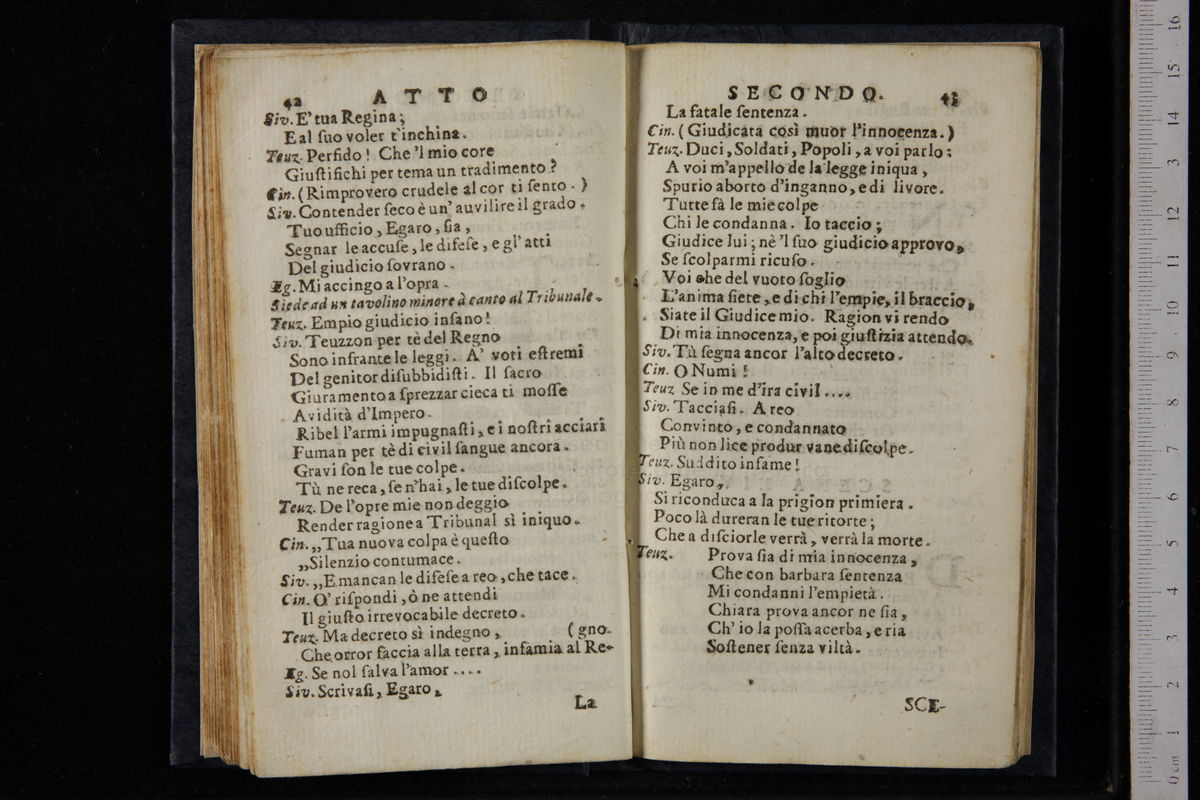 42 ATTO
Siv. E' tua Regina;
E al ſuo voler t'inchina.
Teuz. Perfido! Che 'l mio core
Giuſtifichi per tema un tradimento?
Cin. (Rimprovero crudele al cor ti ſento.)
Siv. Contender ſeco è un' auvilire il grado.
Tuo ufficio, Egaro, ſia,
Segnar le accuſe, le difeſe, e gl' atti
Del giudicio ſovrano.
Eg. Mi accingo a l'opra.
Siede ad un tavolino minore à canto al Tribunale.
Teuz. Empio giudicio inſano!
Siv. Teuzzon per tè del Regno
Sono infrante le leggi. A' voti eſtremi
Del genitor diſubbidiſti. Il ſacro
Giuramento a ſprezzar cieca ti moſſe
Avidità d'Impero.
Ribel l'armi impugnaſti, e i noſtri acciari
Fuman per tè di civil ſangue ancora.
Gravi ſon le tue colpe.
Tù ne reca, ſe n'hai, le tue diſcolpe.
Teuz. De l'opre mie non deggio
Render ragione a Tribunal sì iniquo.
Cin. „Tua nuova colpa è queſto
„Silenzio contumace.
Siv. „E mancan le difeſe a reo, che tace.
Cin. O' riſpondi, ò ne attendi
Il giuſto irrevocabile decreto.
Teuz. Ma decreto sì indegno, (gno.
Che orror faccia alla terra, infamia al Re-
Eg. Se nol ſalva l'amor ....
Siv. Scrivaſi, Egaro,
La
SECONDO. 43
La fatale ſentenza.
Cin. (Giudicata così muor l'innocenza.)
Teuz. Duci, Soldati, Popoli, a voi parlo:
A voi m'appello de la legge iniqua,
Spurio aborto d'inganno, e di livore.
Tutte fà le mie colpe
Chi le condanna. Io taccio;
Giudice lui; nè 'l ſuo giudicio approvo,
Se ſcolparmi ricuſo.
Voi che del vuoto ſoglio
L'anima ſiete, e di chi l'empie, il braccio,
Siate il Giudice mio. Ragion vi rendo
Di mia innocenza, e poi giuſtizia attendo.
Siv. Tù ſegna ancor l'alto decreto.
Cin. O Numi!
Teuz Se in me d'ira civil ....
Siv. Tacciaſi. A reo
Convinto, e condannato
Più non lice produr vane diſcolpe.
Teuz. Suddito infame!
Siv. Egaro,
Si riconduca a la prigion primiera.
Poco là dureran le tue ritorte;
Che a diſciorle verrà, verrà la morte.
Teuz. Prova ſia di mia innocenza,
Che con barbara ſentenza
Mi condanni l'empietà.
Chiara prova ancor ne ſia,
Ch' io la poſſa acerba, e ria
Soſtener ſenza viltà.
SCE-